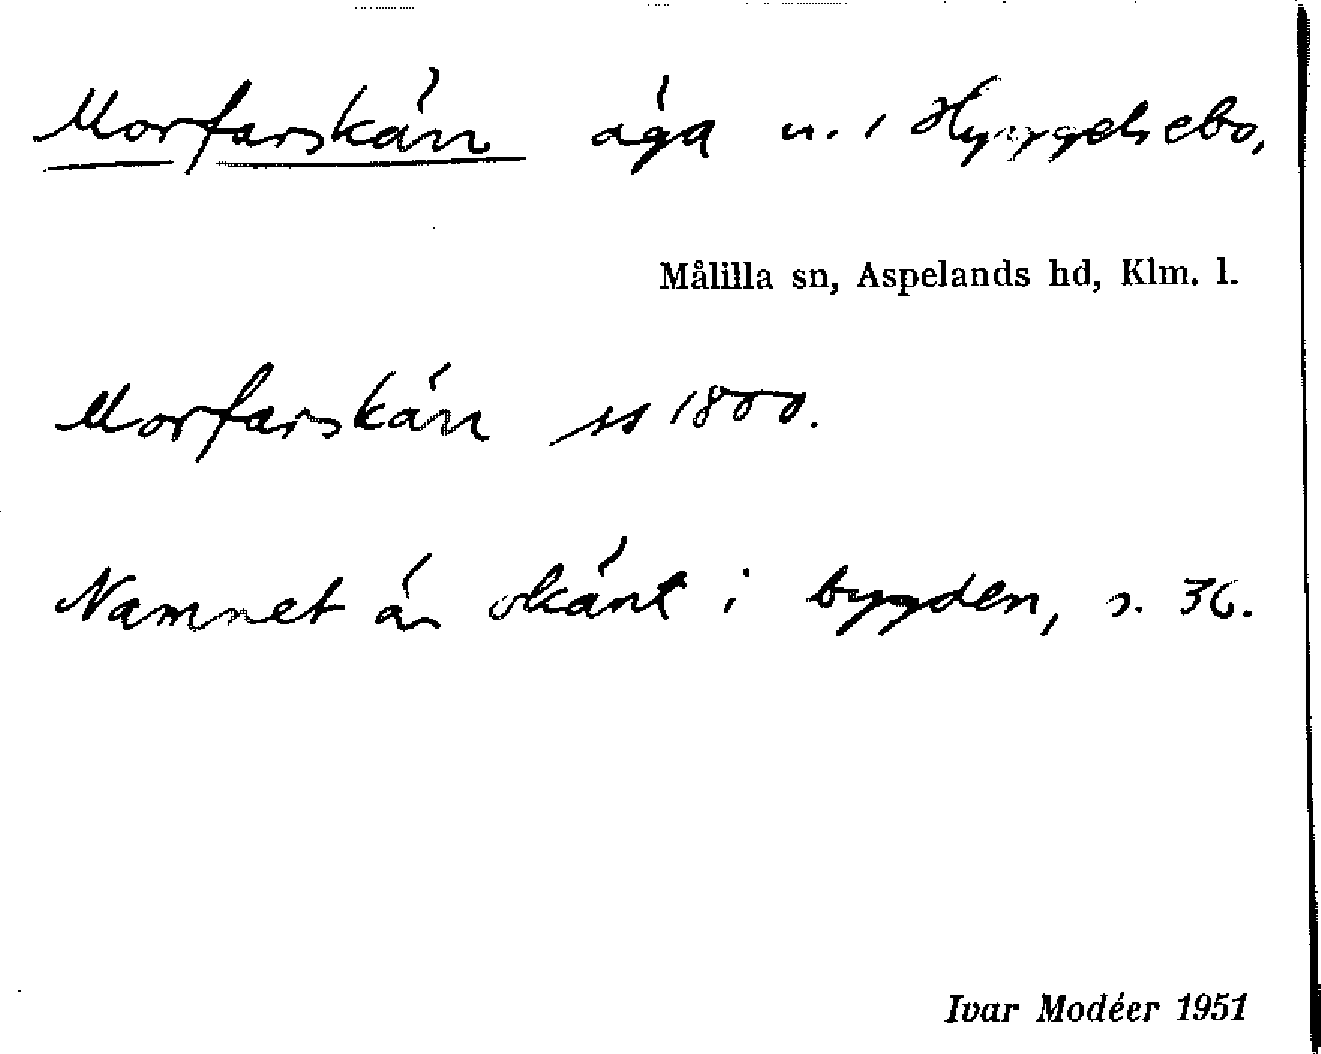 Morfarskärr äga n. i Hyggelsebo,
Målilla sn, Aspelands hd, Klm. l.
Morfarskärr ss 1800.
Namnet är okänt i bygden, s. 36.
Ivar Modéer 1951